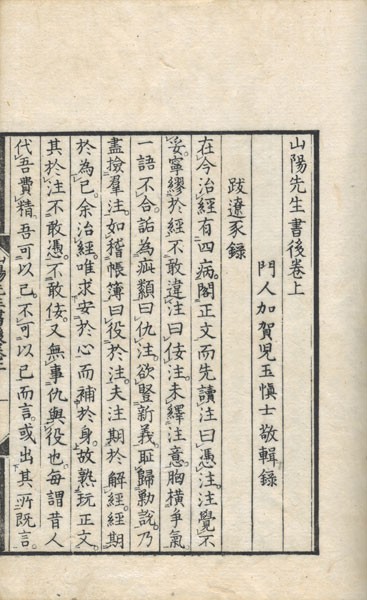 山陽先生書後卷上
門人加賀児玉愼士敬輯録
跋遼豕錄
在今治經有四病閣正文而先讀注曰憑注注覺不
妥寧繆於經不敢違注曰侫注未繹注意胸橫爭氣
一語不合詬為疵纇曰仇注欲豎新義恥歸勦說乃
盡撿羣注如稽帳簿曰役於注夫注期於解經經期
於為已余治經唯求安於心而補於身故熟玩正文
其於注不敢憑不敢侫又無事仇與役也每謂昔人
代吾費精吾可以已不可以已而言或出其所既言